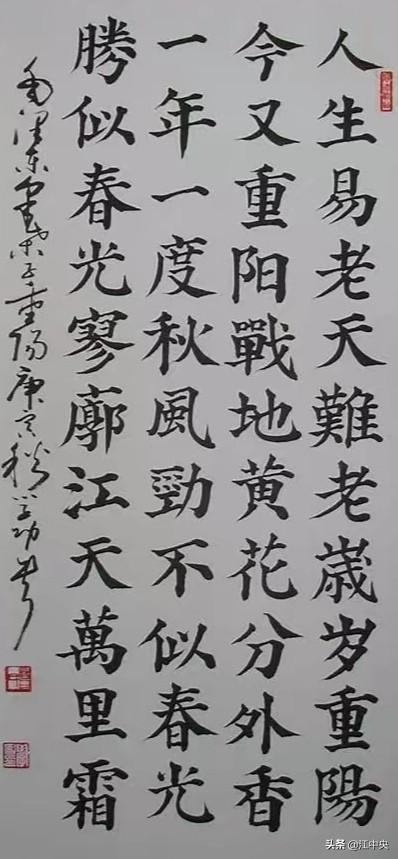 人生易老天難老歳岁重陽
今又重阳戰地黄花分外香
一年一度秋風勁不似春光
勝似春光寥廓江天萬里霜
毛泽东采桑子重陽庚寅秋
头条 @江中央